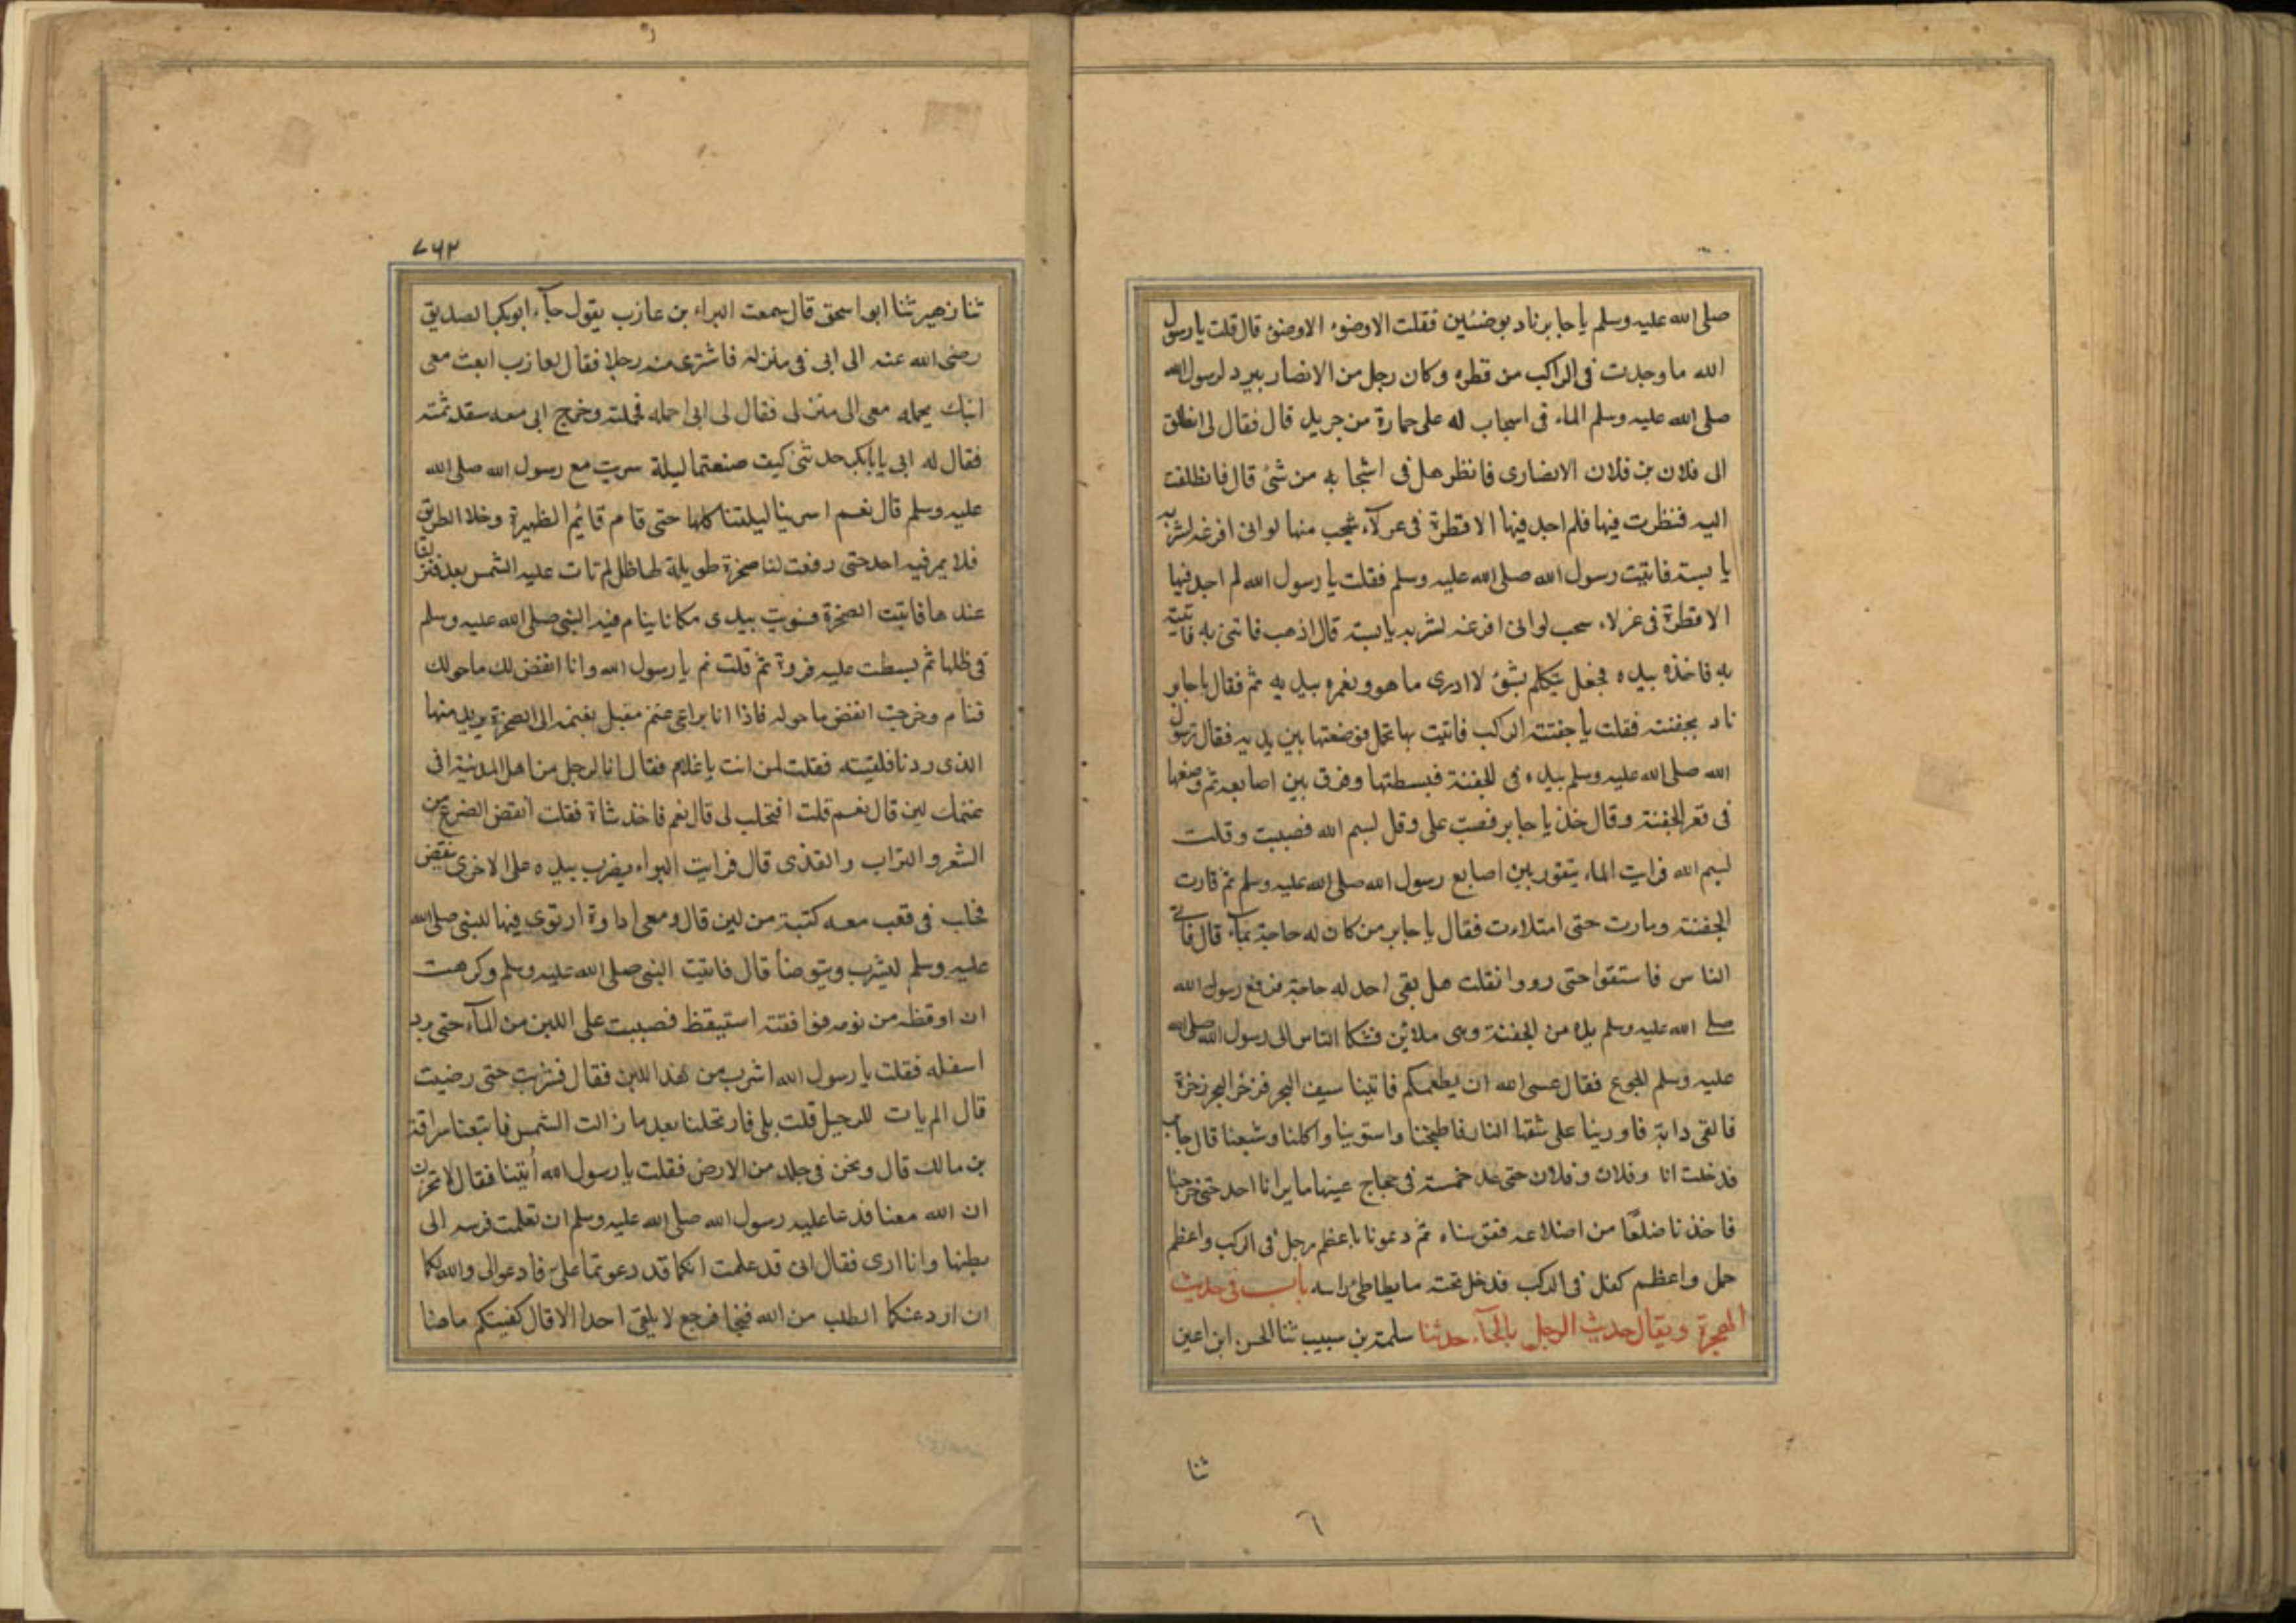 صلى الله عليه وسلم يا جابر ناد بوضئين فقلت الا وضوء الا وضوء قال قلت يا رسول
الله ما وجدت فى الراكب من قطره وكان رجل من الانصار يبرد لرسول الله
صلى الله عليه وسلم الماء فى اسجاب له على حمارة من جريد قال فقال لى انطلق
الى فلان بن فلان الانصارى فانظر هل فى اشجابه من شئ قال فانطلقت
اليه فنظرت فيها فلم اجد فيها الا قطرة فى عزلاء شجب منها لوانى افرغه لشربه
يابسته فاتيت رسول الله صلى الله عليه وسلم فقلت يا رسول الله لم اجد فيها
الا قطرة فى عزلاء سحب لوانى افرغه لشربه يابسته قال اذهب فاتنى به فاتيته
به فاخذه بيده فجعل يتكلم بشئ لا ادرى ما هو ويغمره بيديه ثم فقال يا جابر
ناد بجفنته فقلت يا جفنته الركب فاتيت بها تحمل فوضعتها بين يديه فقال رسول
الله صلى الله عليه وسلم بيده فى الجفنة فبسطتها وفرق بين اصابعه ثم وضعها
فى قعر الجفنة وقال خذ يا جابر فصب على وقل بسم الله فصببت وقلت
بسم الله فرايت الماء يتفور بين اصابع رسول الله صلى الله عليه وسلم ثم فارت
الجفنة ودارت حتى امتلات فقال يا جابر من كان له حاجة بماء قال فاتى
الناس فاستقوا حتى رووا فقلت هل بقى احد له حاجة فرفع رسول الله
صلى الله عليه وسلم يده من الجفنة وهى ملائين فشكا الناس الى رسول الله صلى الله
عليه وسلم الجوع فقال عسى الله ان يطعمكم فاتينا سيف البحر فزخر البحر زخرة
فالقى دابة فاورينا على شقها النار فاطبخنا واستوينا واكلنا وشبعنا قال جابر
فدخلت انا وفلان وفلان حتى عد خمسة فى حجاج عينها ما يرانا احد حتى خرجنا
فاخذنا ضلعا من اضلاعه فقوسناه ثم دعونا باعظم رجل فى الركب واعظم
جمل واعظم كفل فى الركب فدخل تحته ما يطاطئ راسه باب فى حديث
الهجرة ويقال حديث الرجل بالحاء حدثنا سلمة بن سبيب ثنا الحسن ابن اعين
ثنا
٦
٧٦٢
ثنا زهير ثنا ابو اسحق قال سمعت البراء بن عازب يقول جاء ابو بكر الصديق
رضى الله عنه الى ابى فى منزله فاشترى منه رجلا فقال لعازب ابعث معى
ابنك يحمله معى الى منزلى فقال لى ابى احمله فحملته وخرج ابى معه سقد ثمنه
فقال له ابى يابابكر حدثنى كيف صنعتما ليلة سريت مع رسول الله صلى الله
عليه وسلم قال نعم اسرينا ليلتنا كلها حتى قام قائم الظهيرة وخلا الطريق
فلا يمر فيه احد حتى رفعت لنا صخرة طويلة لها ظل لم تات عليه الشمس بعد فنزلنا
عندها فاتيت الصخرة فسويت بيدى مكانا ينام فيه النبى صلى الله عليه وسلم
فى ظلها ثم بسطت عليه فروة ثم قلت نم يا رسول الله وانا انفض لك ما حولك
فنام وخرجت انفض ما حوله فاذا انا براعى غنم مقبل بغنمه الى الصخرة يريد منها
الذى ردنا فلقيته فقلت لمن انت يا غلام فقال انا لرجل من اهل المدينة افى
غنمك لبن قال نعم قلت افتحلب لى قال نعم فاخذ شاة فقلت انفض الضرع من
الشعر والتراب والقذى قال فرايت البراء يضرب بيده على الاخرى ينفض
فحلب فى قعب معه كتبة من لبن قال ومعى اداوة ارتوى فيها للنبى صلى الله
عليه وسلم ليشرب ويتوضأ قال فاتيت النبى صلى الله عليه وسلم وكرهت
ان اوقظه من نومه فوافقته استيقظ فصببت على اللبن من الماء حتى برد
اسفله فقلت يا رسول الله اشرب من هذا اللبن فقال فشرب حتى رضيت
قال الم يات للرحيل قلت بلى فارتحلنا بعد ما زالت الشمس فاتبعنا سراقة
بن مالك قال ونحن فى جلد من الارض فقلت يا رسول الله أتينا فقال لا تحزن
ان الله معنا فدعا عليه رسول الله صلى الله عليه وسلم ان تعلمت فرسه الى
بطنها وانا ارى فقال انى قد علمت انكما قد دعوتما على فادعوا لى والله لكما
ان ارد عنكما الطلب من الله فنجا فرجع لا يلقى احدا الا قال كفيتكم ما هنا